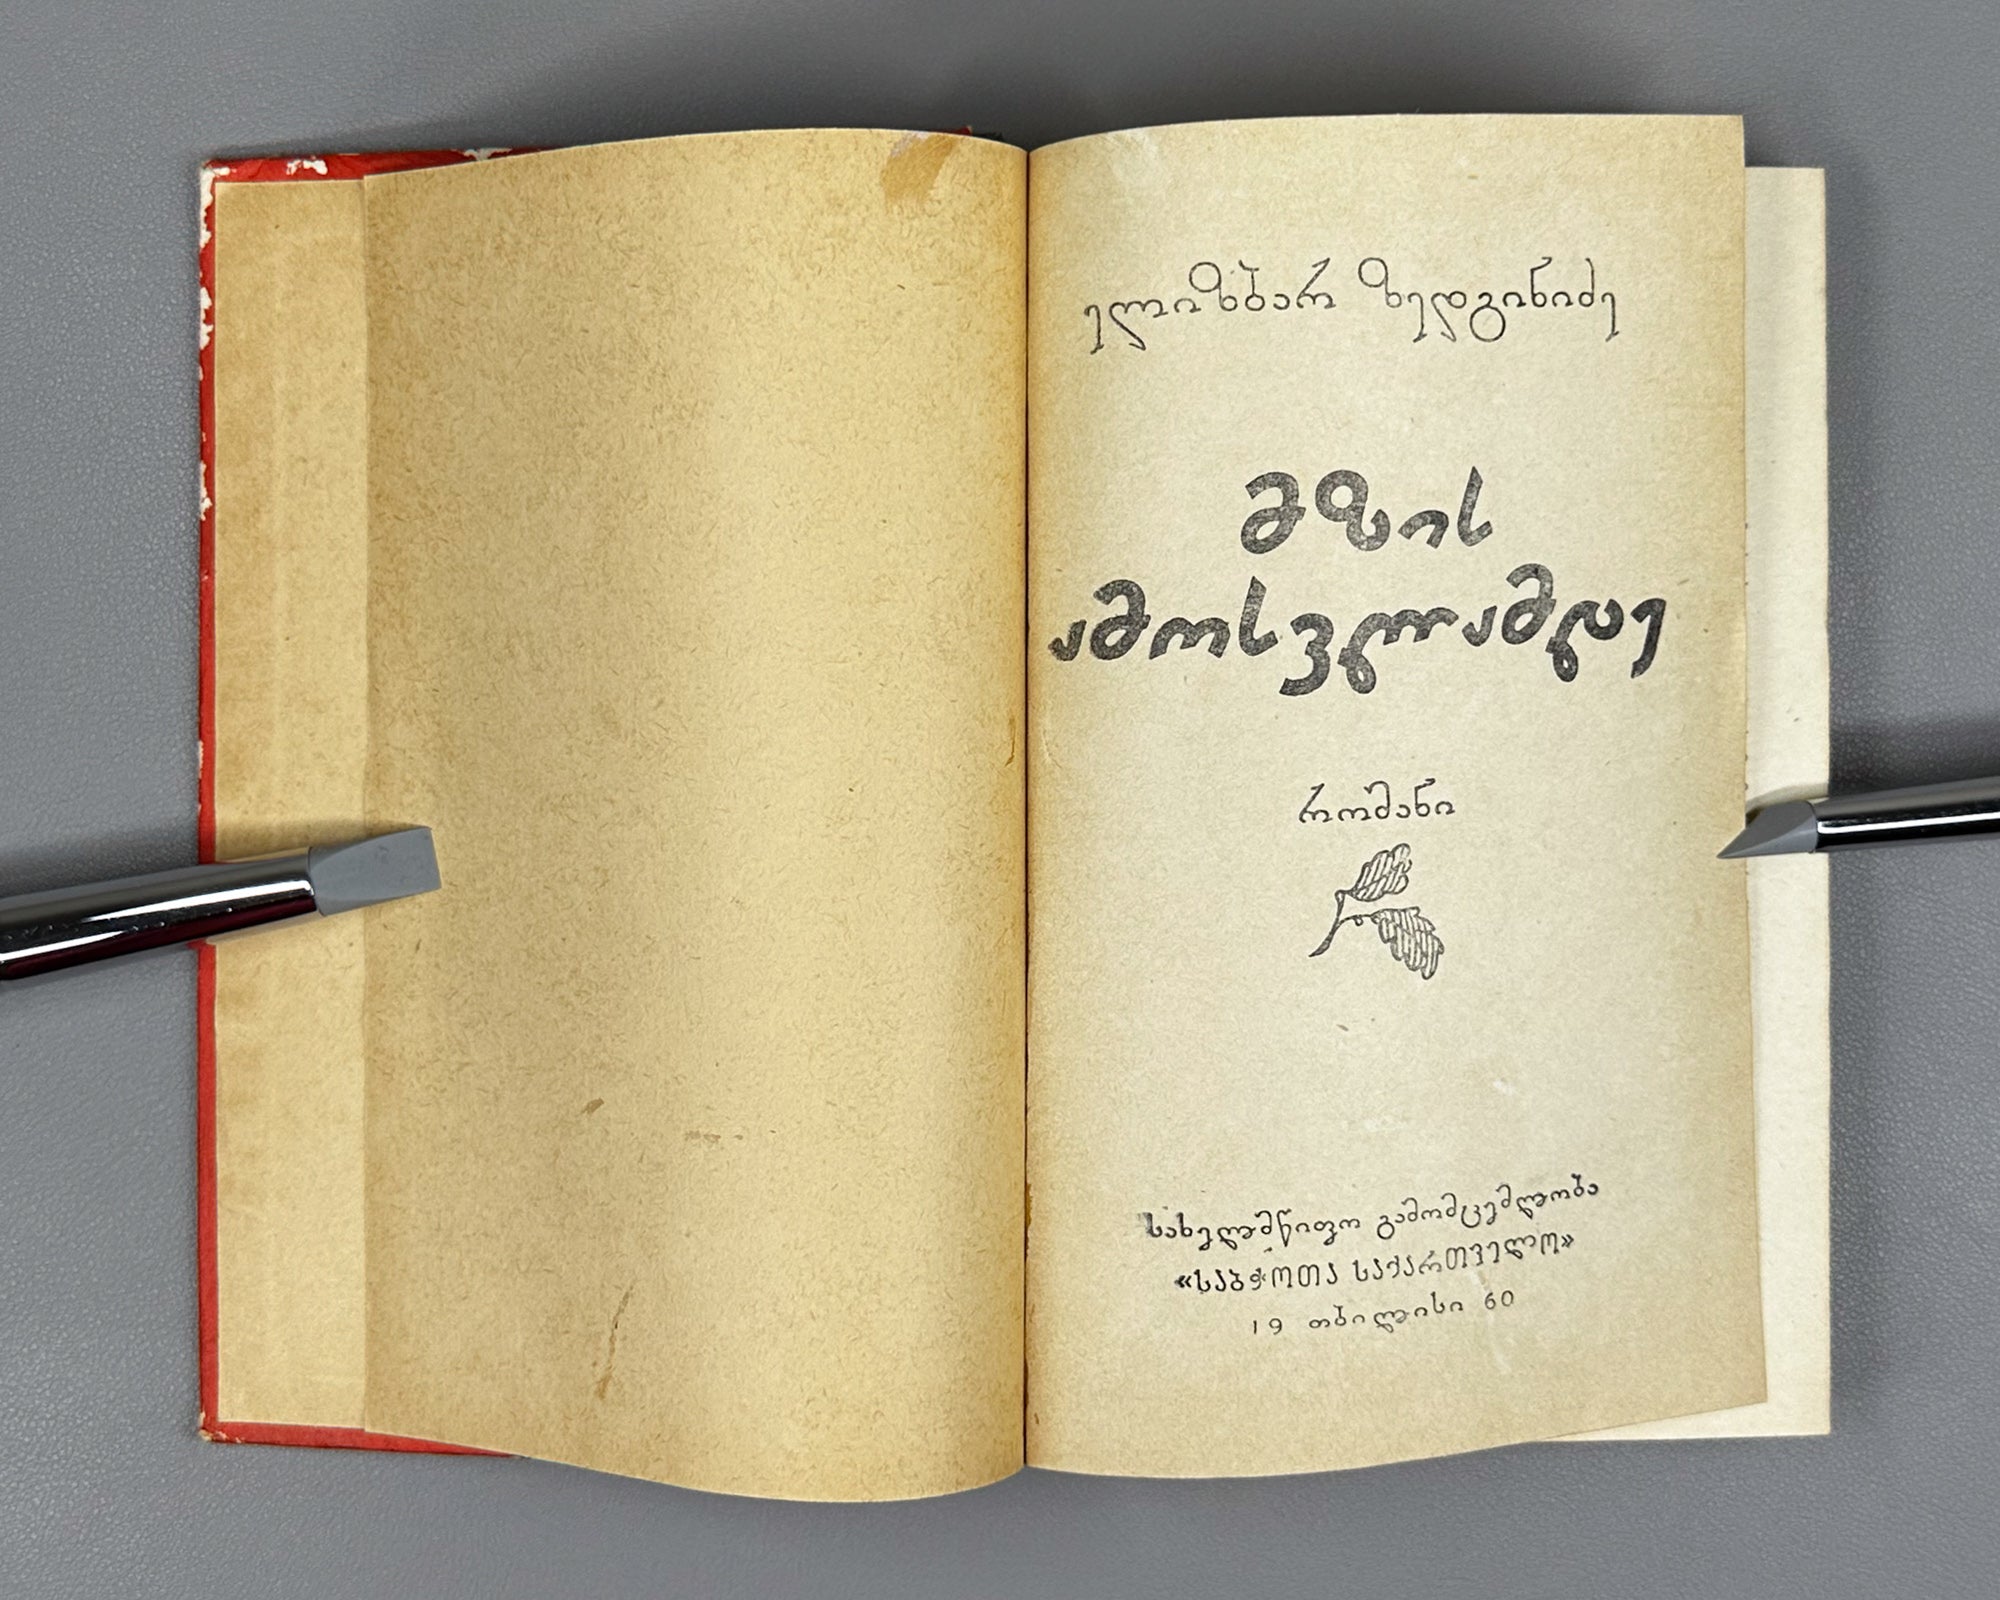 ელიზბარ ზედგინიძე
მზის
ამოსვლამდე
რომანი
სახელმწიფო გამომცემლობა
«საბჭოთა საქართველო»
19 თბილისი 60